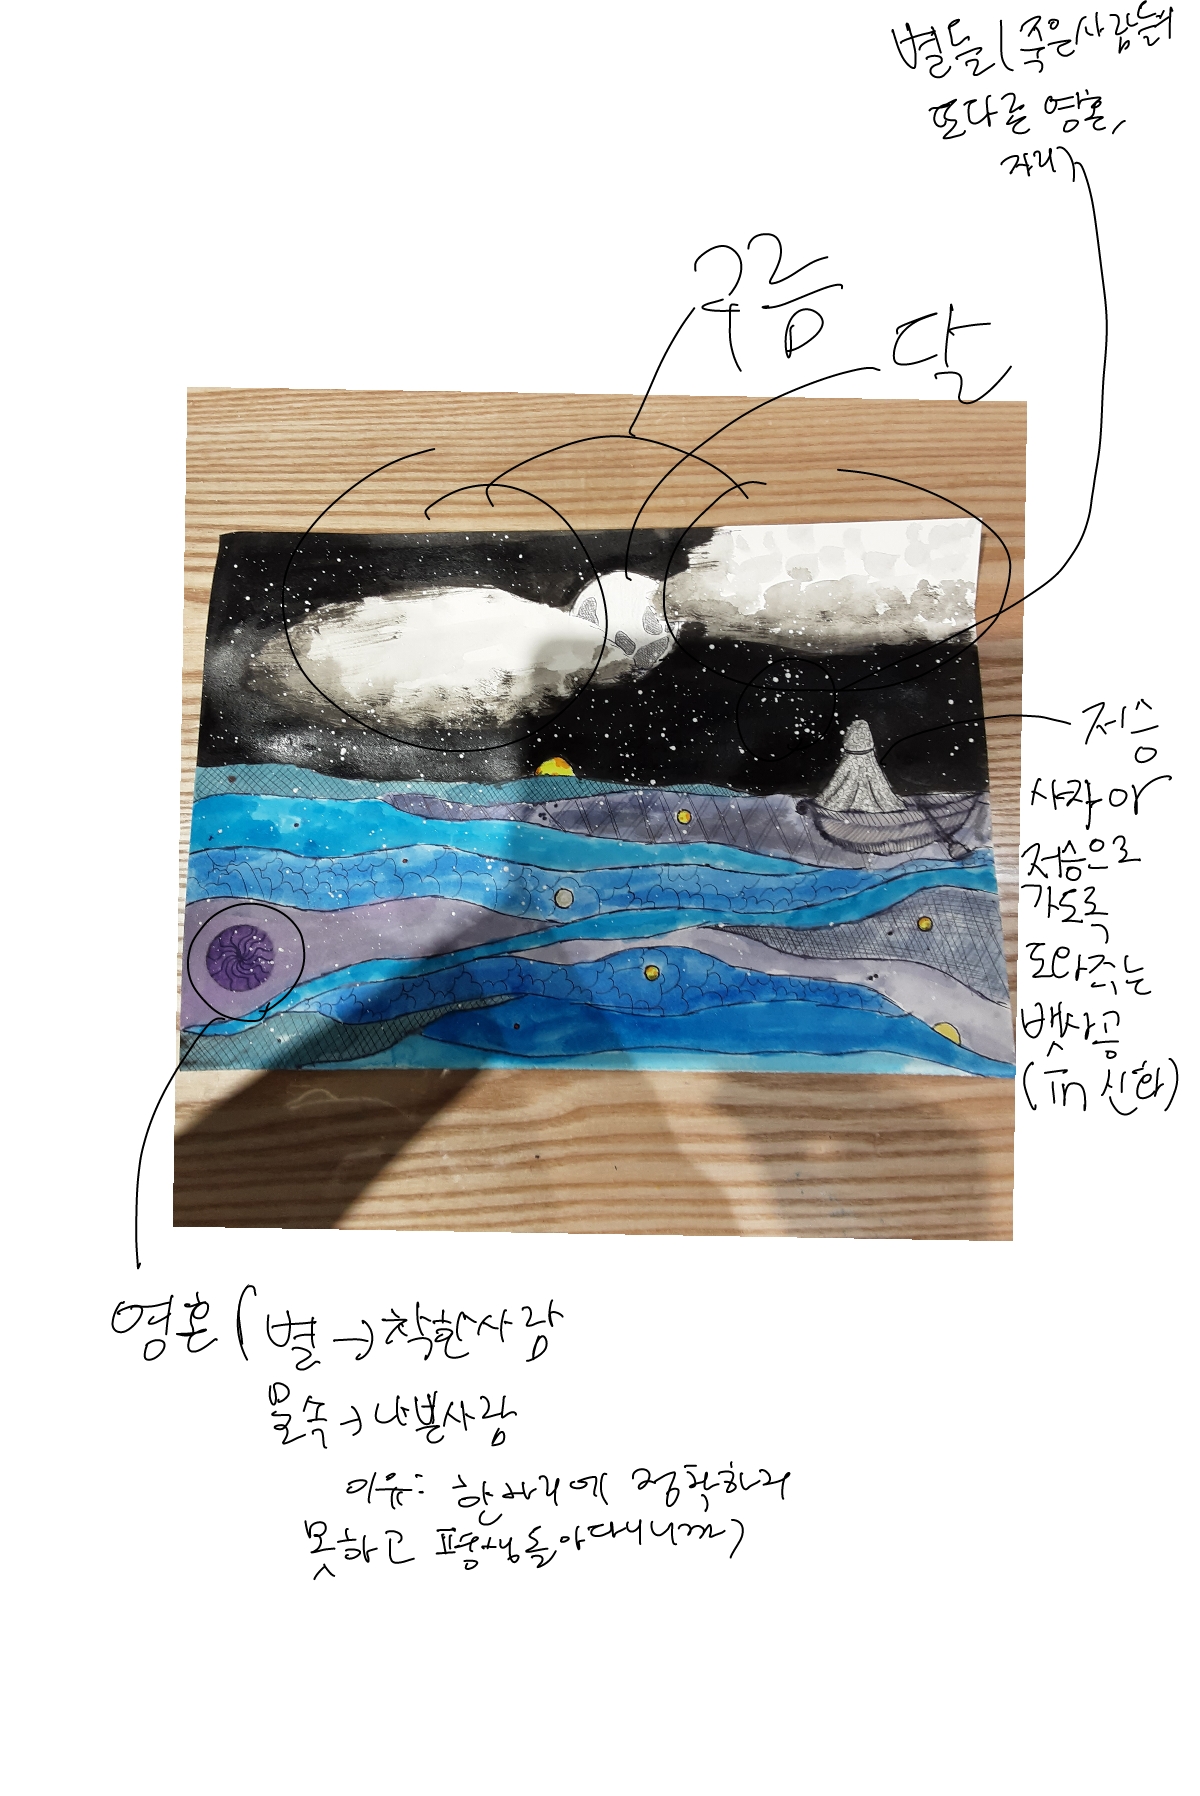 별들(죽은사람들의
또다른 영혼,
자리)
구름
달
저승
사자야
저승으로
가도록
도와주는
뱃사공
(in 신화)
영혼(별→착한사람
물속→나쁜사람
이유: 한자리에 정착하지
못하고 평생돌아다니니까)